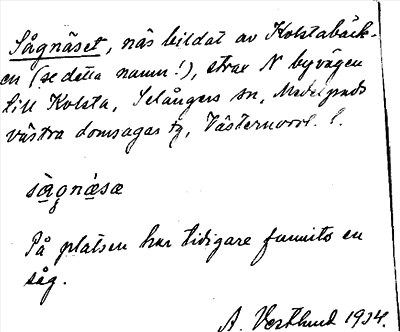 Sågnäset, näs bildat av Kolstabäck-
en (se detta namn!), strax N byvägen
till Kolsta, Selångers sn, Medelpads
västra domsagas tg, Västernorrl. l.
sågnäsæ
På platsen har tidigare funnits en
såg.
A. Vestlund 1934.